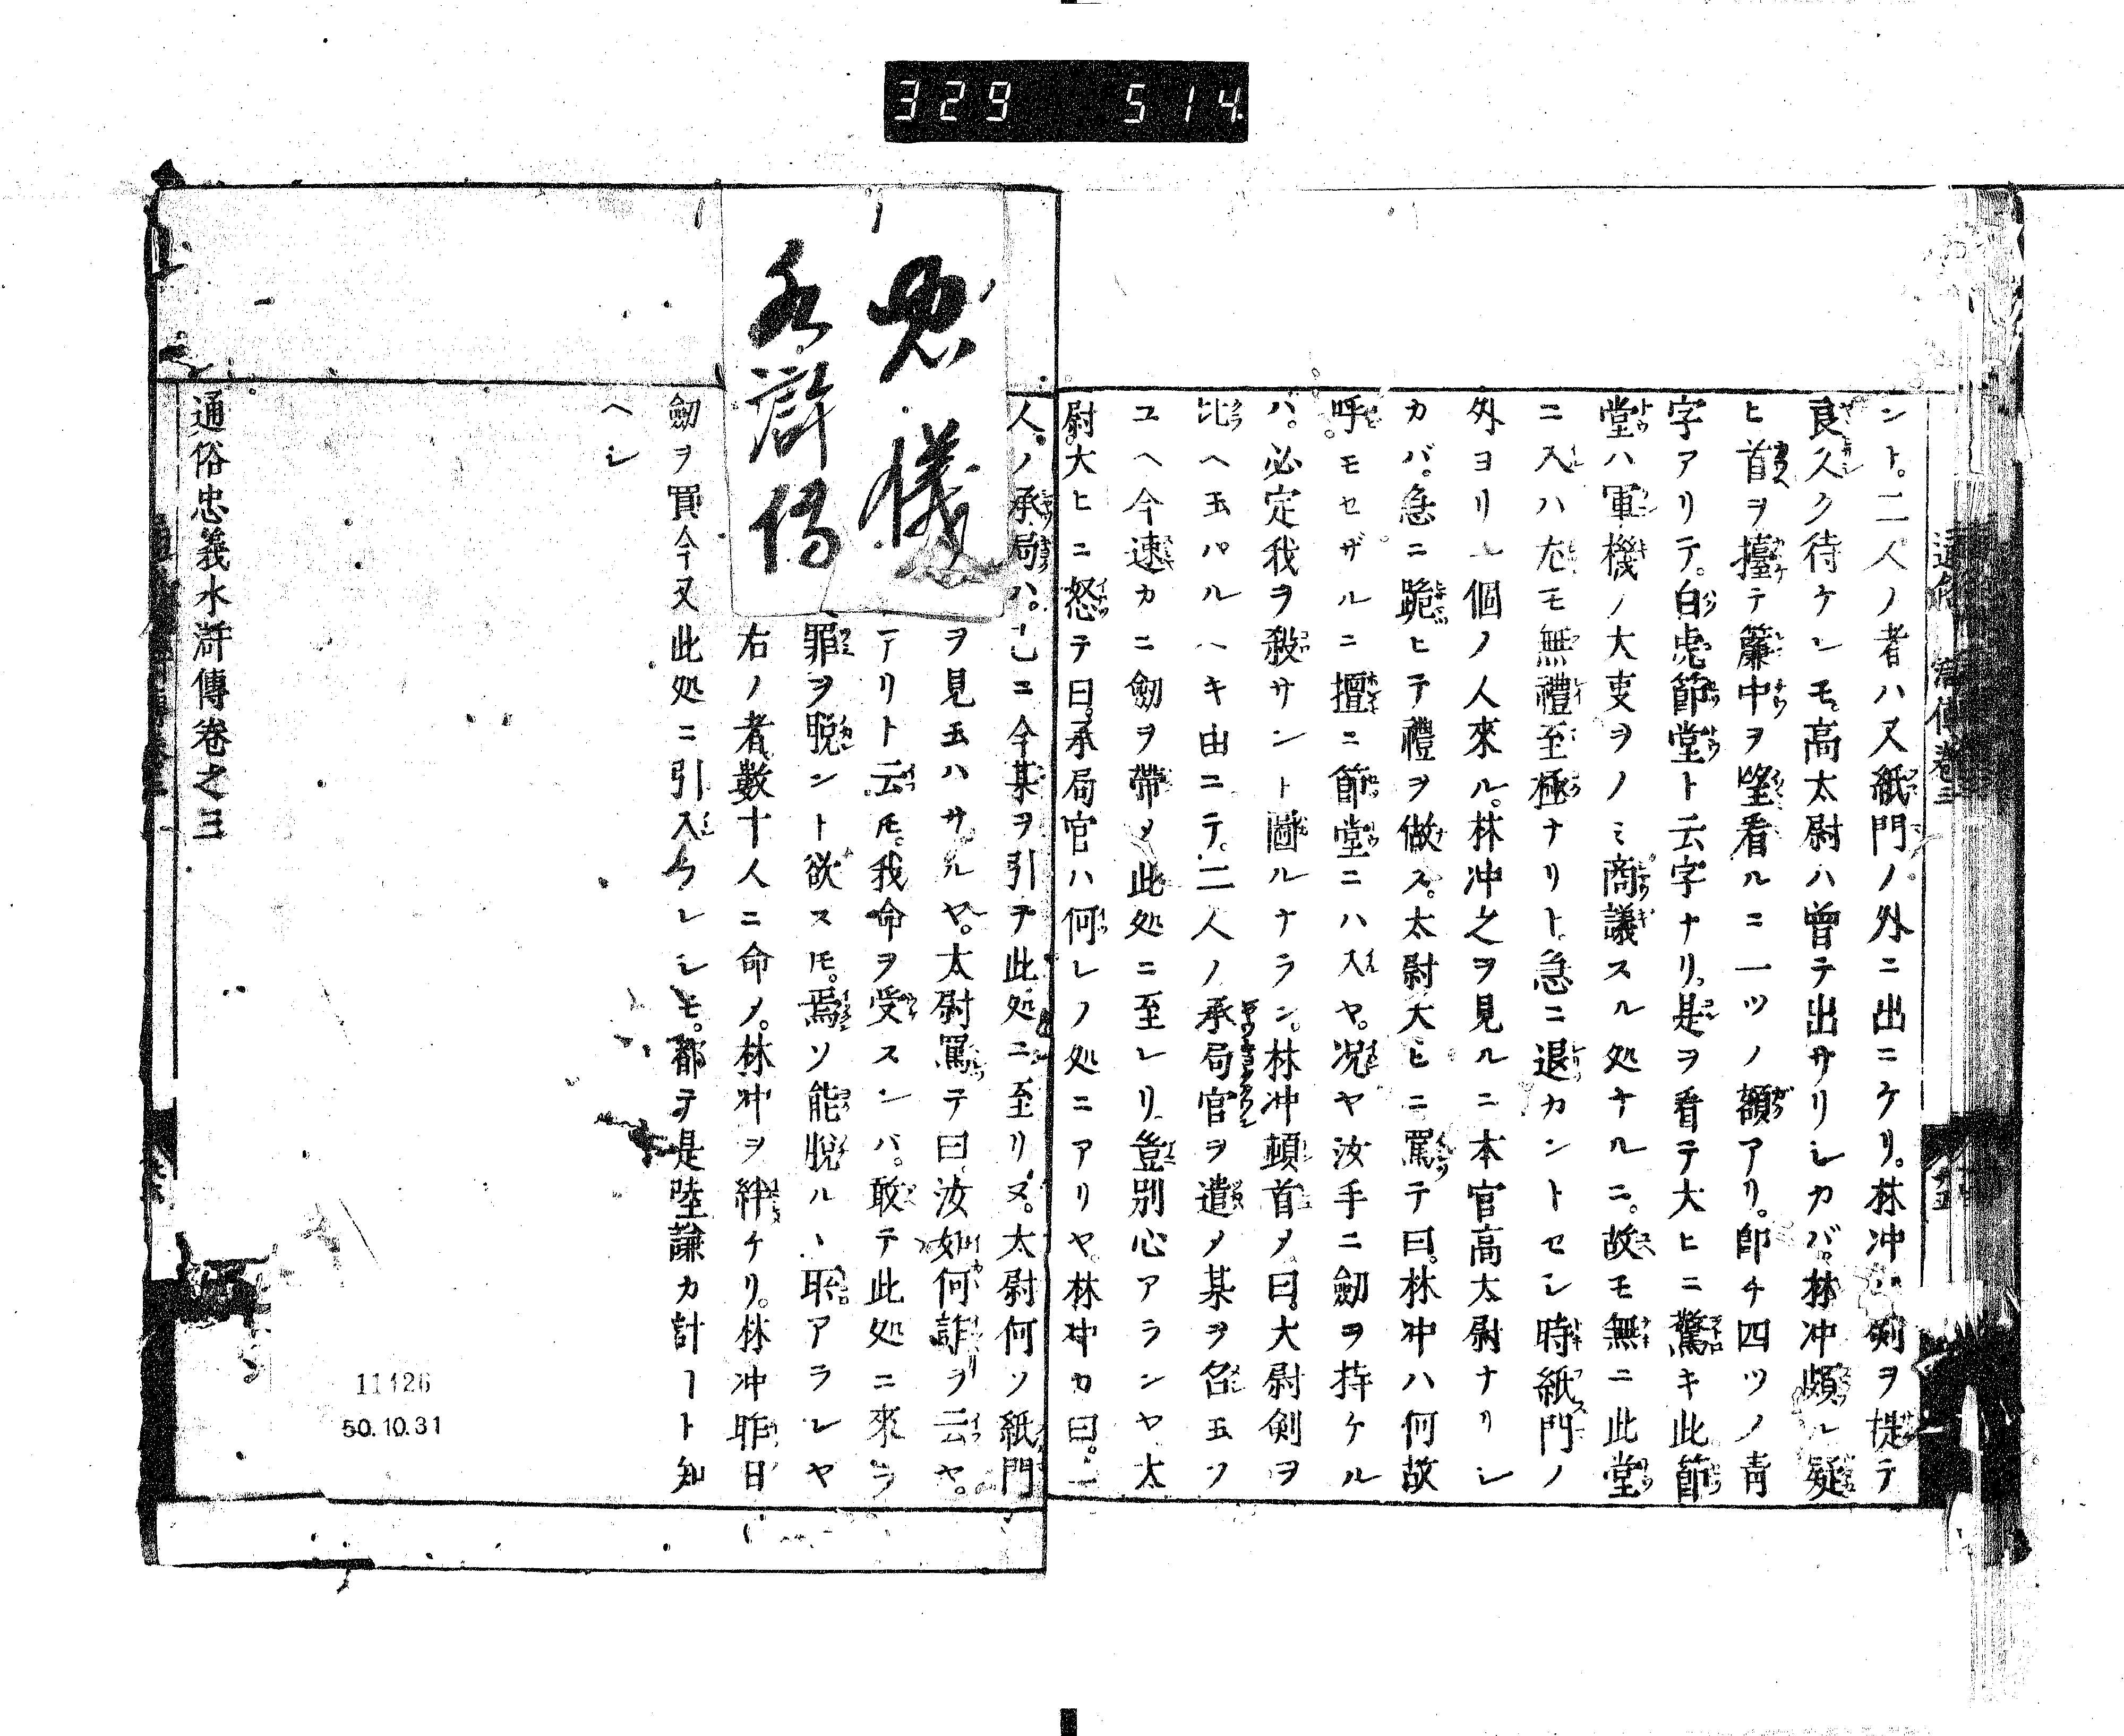 329 514
ント。二人ノ者ハ又紙門ノ外ニ出ニケリ。林冲ハ剣ヲ提テ
良久ク待ケレモ。高太尉ハ曾テ出サリシカバ。林冲頗ル疑
ヒ首ヲ擡テ簾中ヲ望看ルニ一ツノ額アリ。即チ四ツノ青
字アリテ。白虎節堂ト云字ナリ。是ヲ看テ大ヒニ驚キ此節
堂ハ軍機ノ大事ヲノミ商議スル処ナルニ。故モ無ニ此堂
ニ入ハ尤モ無禮至極ナリト急ニ退カントセシ時紙門ノ
外ヨリ一個ノ人來ル。林冲之ヲ見ルニ本官高太尉ナリシ
カバ。急ニ跪ヒテ禮ヲ做ス。太尉大ヒニ罵テ曰。林冲ハ何故
呼モセザルニ擅ニ節堂ニハ入ヤ。况ヤ汝手ニ劔ヲ持ケル
ハ。必定我ヲ殺サント圖ルナラン。林冲頓首メ曰。大尉剣ヲ
比ヘ玉ハルヘキ由ニテ。二人ノ承局官ヲ遣メ某ヲ召玉フ
ユヘ今速カニ劔ヲ帶メ此処ニ至レリ豈別心アランヤ太
尉大ヒニ怒テ曰。承局官ハ何レノ処ニアリヤ。林冲カ曰。二
人ノ承局ハ。已ニ今某ヲ引テ此処ニ至リヌ。太尉何ソ紙門
ヲ見玉ハサルヤ。太尉罵テ曰。汝如何詐リヲ云ヤ。
アリト云モ。我命ヲ受スンバ。敢テ此処ニ來ラ
罪ヲ脱ント欲スモ。焉ソ能脱ルヽ耴アラレヤ
右ノ者數十人ニ命メ。林冲ヲ絆ケリ。林冲昨日
劔ヲ買今又此処ニ引入ケレシモ。都テ是陸謙カ計ート知
ヘシ
忠儀
水滸傳
通俗忠義水滸傳卷之三
11426
50.10.31